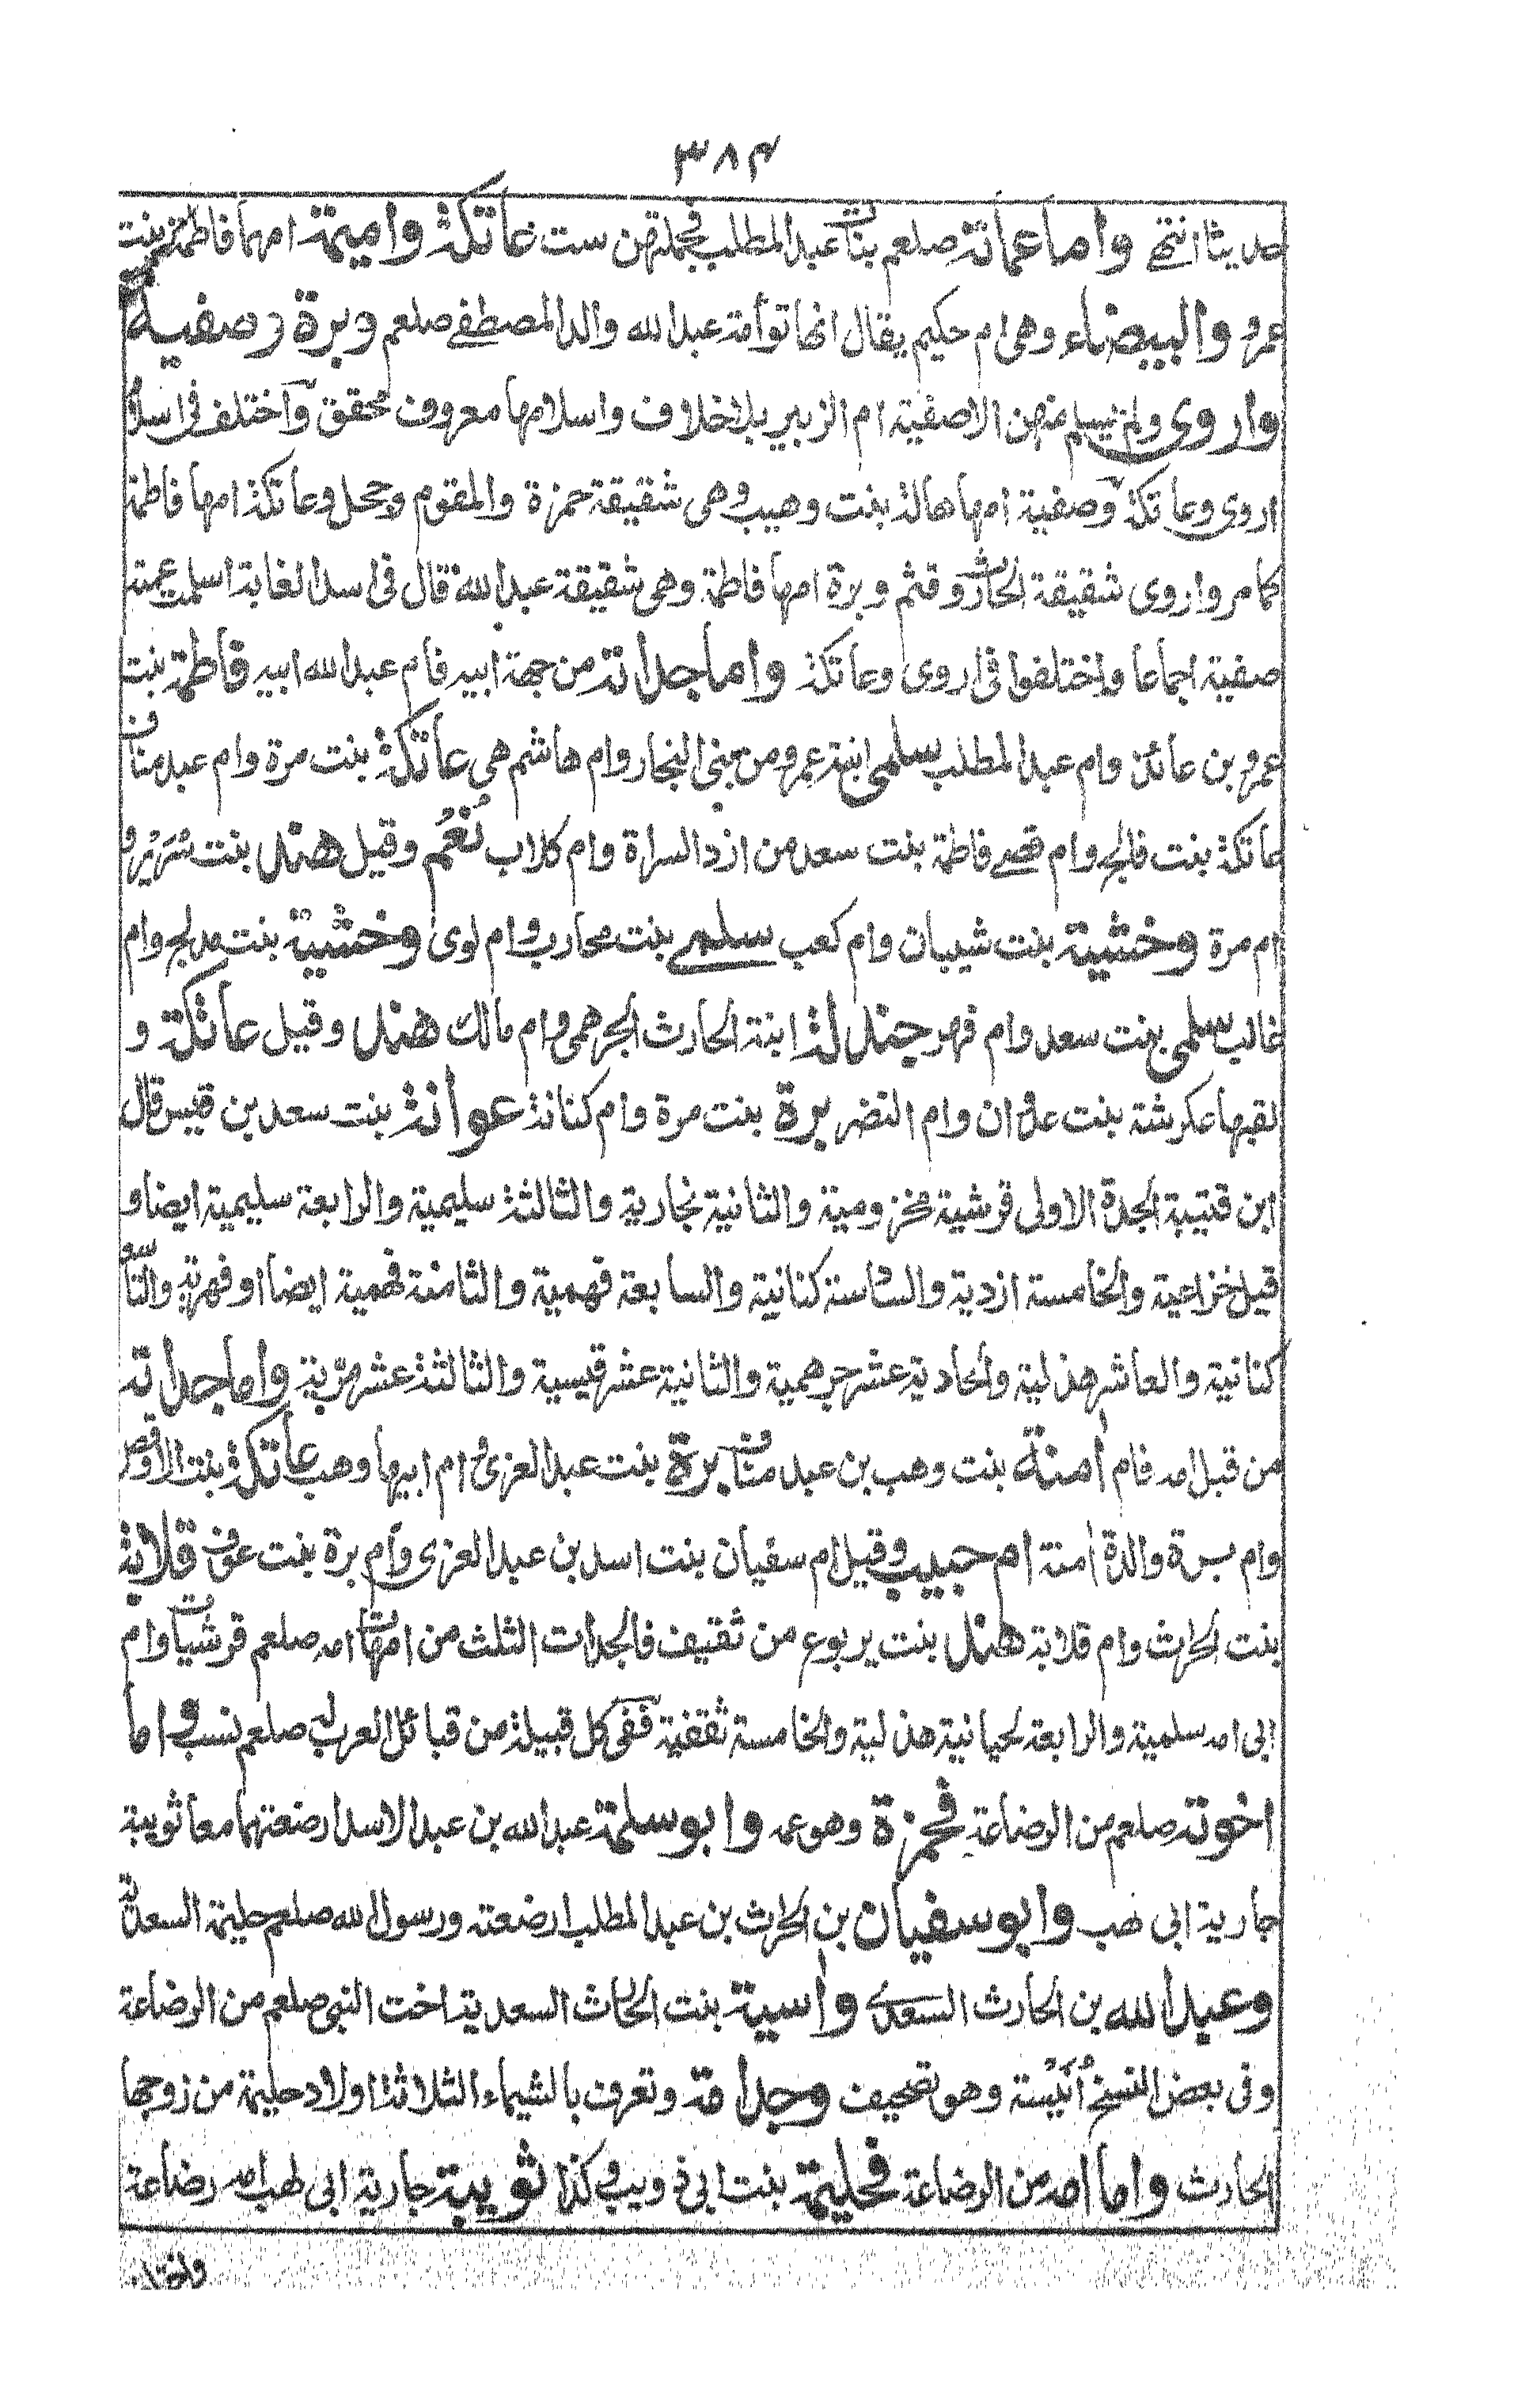 ٣٨٤
حديثا انتهى واما عماته صلعم بنات عبد المطلب فجملتهن ست عاتكة واميمة امهما فاطمة بنت
عمرو والبيضاء وهى ام حكيم يقال انها توأمة عبد الله والد المصطفے صلعم وبرة وصفية
واروى ولم يسلم منهن الا صفية ام الزبير بلا خلاف واسلامها معروف محقق واختلف فى اسلام
اروى وعاتكة وصفية امها هالة بنت وهيب وهى شقيقة حمزة والمقوم وجحل وعاتكة امها فاطمة
كما مر واروى شقيقة الحارث وقثم وبرة امها فاطمة وهى شقيقة عبد الله قال فى اسد الغابة اسلمت عمته
صفية اجماعا واختلفوا فى اروى وعاتكة واما جداته من جهة ابيه فام عبد الله ابيه فاطمة بنت
عمرو بن عائذ وام عبد المطلب سلمى ابنة عمرو من بنى النجار وام هاشم هى عاتكة بنت مرة وام عبد مناف
عاتكة بنت فالج وام قصے فاطمة بنت سعد من ازد السراة وام كلاب نُعْم وقيل هند بنت سُرَيْر و
ام مرة وخشية بنت شيبان وام كعب سلمے بنت محارب وام لوى وخشية بنت مدلج وام
غالب سلمى بنت سعد وام فهر جندلة ابنة الحارث الجرهمى وام مالك هند وقيل عاتكة و
لقبها عكرشة بنت عدوان وام النضر برة بنت مرة وام كنانة عوانة بنت سعد بن قيس قال
ابن قتيبة الجدة الاولى قرشية مخزومية والثانية نجارية والثالثة سليمية والرابعة سليمية ايضا و
قيل خزاعية والخامسة ازدية والسادسة كنانية والسابعة فهمية والثامنة فهمية ايضا او فهرية والتاسعة
كنانية والعاشر هذلية والحادية عشر جرهمية والثانية عشر قيسية والثالثة عشر مرّية واما جداته
من قبل امه فام اٰمنة بنت وهب بن عبد مناف برة بنت عبد العزى وام ابيها وهب عاتكة بنت الاوقص
وام برة والدة اٰمنة ام حبيب وقيل ام سفيان بنت اسد بن عبد العزى وام برة بنت عوف قلابة
بنت الحرث وام قلابة هند بنت يربوع من ثقيف فالجدات الثلث من امهات امه صلعم قرشيات وام
ابى امه سلمية والرابعة لحيانية هذلية والخامسة ثقفية ففى كل قبيلة من قبائل العرب له صلعم نسب واما
اخوته صلعم من الرضاعة فحمزة وهو عمه وابو سلمة عبد الله بن عبد الاسد ارضعتهما معا ثويبة
جارية ابى لهب وابو سفيان بن الحرث بن عبد المطلب ارضعته ورسول الله صلعم حليمة السعدية
وعبد الله بن الحارث السعدى واٰسية بنت الحارث السعدية اخت النبى صلعم من الرضاعة
وفى بعض النسخ أُنَيْسة وهو تصحيف وجدامة وتعرف بالشيماء الثلاثة اولاد حليمة من زوجها
الحارث واما امه من الرضاعة فحليمة بنت ابى ذويب وكذا ثويبة جارية ابى لهب امه رضاعة